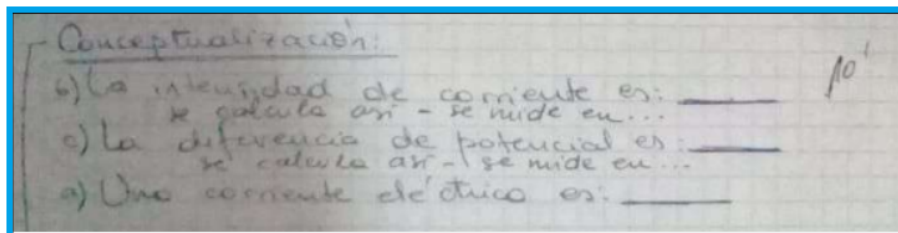 Conceptualización:
b) La intensidad de corriente es: ____
se calcula así - se mide en...
c) La diferencia de potencial es: ____
se calcula así - se mide en...
a) Una corriente eléctrica es: ____
10'